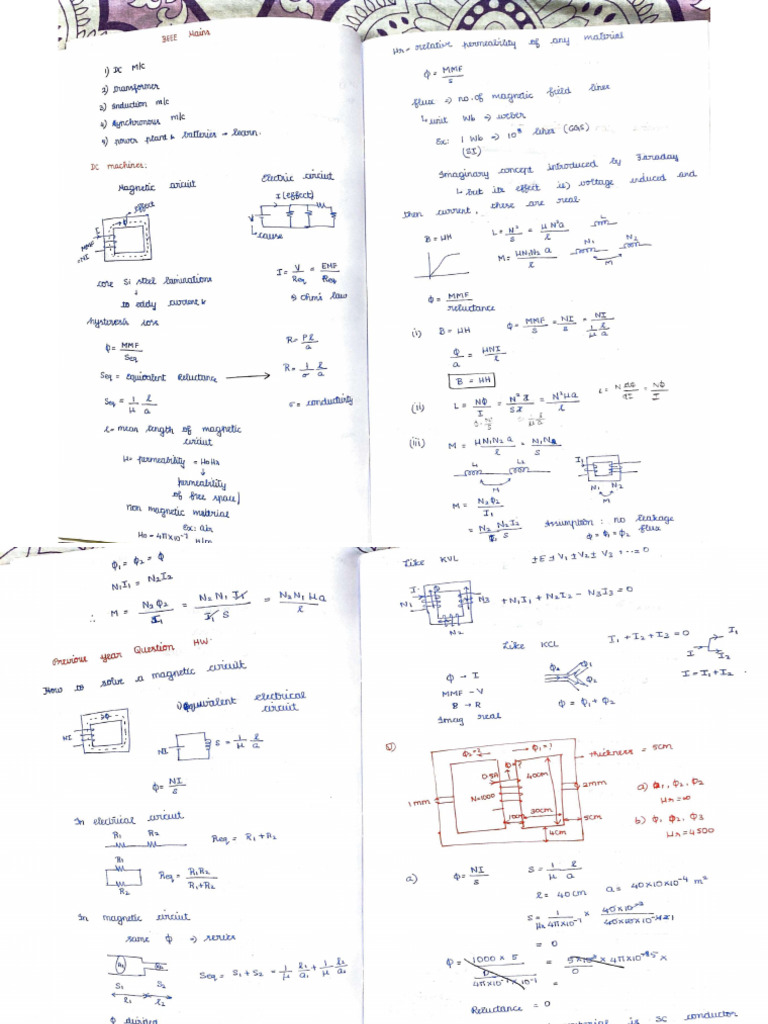 BEEE Mains
1) DC M/C
2) transformer
3) Induction m/c
4) Synchronous m/c
5) power plant & batteries → learn.
DC machines:
Magnetic circuit
effect
I
MMF
=NI
core Si steel laminations
↓
to eddy current &
hysteresis loss
Φ = MMF / Seq
Seq = equivalent Reluctance
Seq = 1/μ l/a
l = mean length of magnetic
circuit
μ = permeability = μ0 μr
↓
permeability
of free space]
non magnetic material
Ex: air
μ0 = 4π×10⁻⁷
Electric circuit
I (effect)
V
cause
I = V/Req = EMF/Req
Ohms law
R = ρl/a
R = 1/σ l/a
σ = conductivity
μr = relative permeability of any material
Φ = MMF/S
flux ⇒ no. of magnetic field lines
unit Wb ⇒ weber
Ex: 1 Wb ⇒ 10⁸ lines (CGS)
(SI)
Imaginary concept introduced by Faraday
but its effect is) voltage induced and
then current, these are real.
B = μH
L = N²/S = μN²a/l
L
M = μN1N2 a/l
N1 N2
M
Φ = MMF/reluctance
(i) B = μH Φ = MMF/S = NI/S = NI / (1/μ l/a)
Φ/a = μNI/l
B = μH
(ii) L = NΦ/I = N² I/S I = N²μa/l
L = N dΦ/dI = NΦ/I
(iii) M = μN1N2 a/l = N1N2/S
L1 L2
M
I1
N1 N2
M
M = N2Φ2/I1
= N2 N2I2/I1 S
Assumption: no leakage
flux
Φ = Φ1 = Φ2
Φ1 = Φ2 = Φ
N1I1 = N2I2
∴ M = N2Φ2/I1 = N2 N1 I1/I1 S = N2N1 μa/l
Previous year Question HW.
How to solve a magnetic circuit
Φ
NI
Equivalent electrical
circuit
NI S = 1/μ l/a
Φ = NI/S
In electrical circuit
R1 R2
Req = R1+R2
R1
R2
Req = R1R2/R1+R2
In magnetic circuit
same Φ ⇒ series
S1 S2
l1 l2
Seq = S1 + S2 = 1/μ l1/a1 + 1/μ l2/a2
Like KVL ±E ± V1 ± V2 ± V2 ....=0
I
N1 N3
N2
+N1I1 + N2I2 - N3I3 = 0
Like KCL I1 + I2 + I3 = 0
I1
I
I2
I = I1 + I2
Φ → I
MMF - V
R → R
Imag real
Φ1
Φ2
Φ = Φ1 + Φ2
Φ2=? Φ1=?
Φ=?
thickness = 5cm
0.5A
40cm
N=1000
1mm
2mm
30cm
5cm
4cm
a) Φ1, Φ2, Φ2
μr = ∞
b) Φ, Φ2, Φ3
μr = 4500
a) Φ = NI/S S = 1/μ l/a
l = 40 cm a = 40×10×10⁻⁴ m²
= 0
Reluctance = 0
is SC conductor